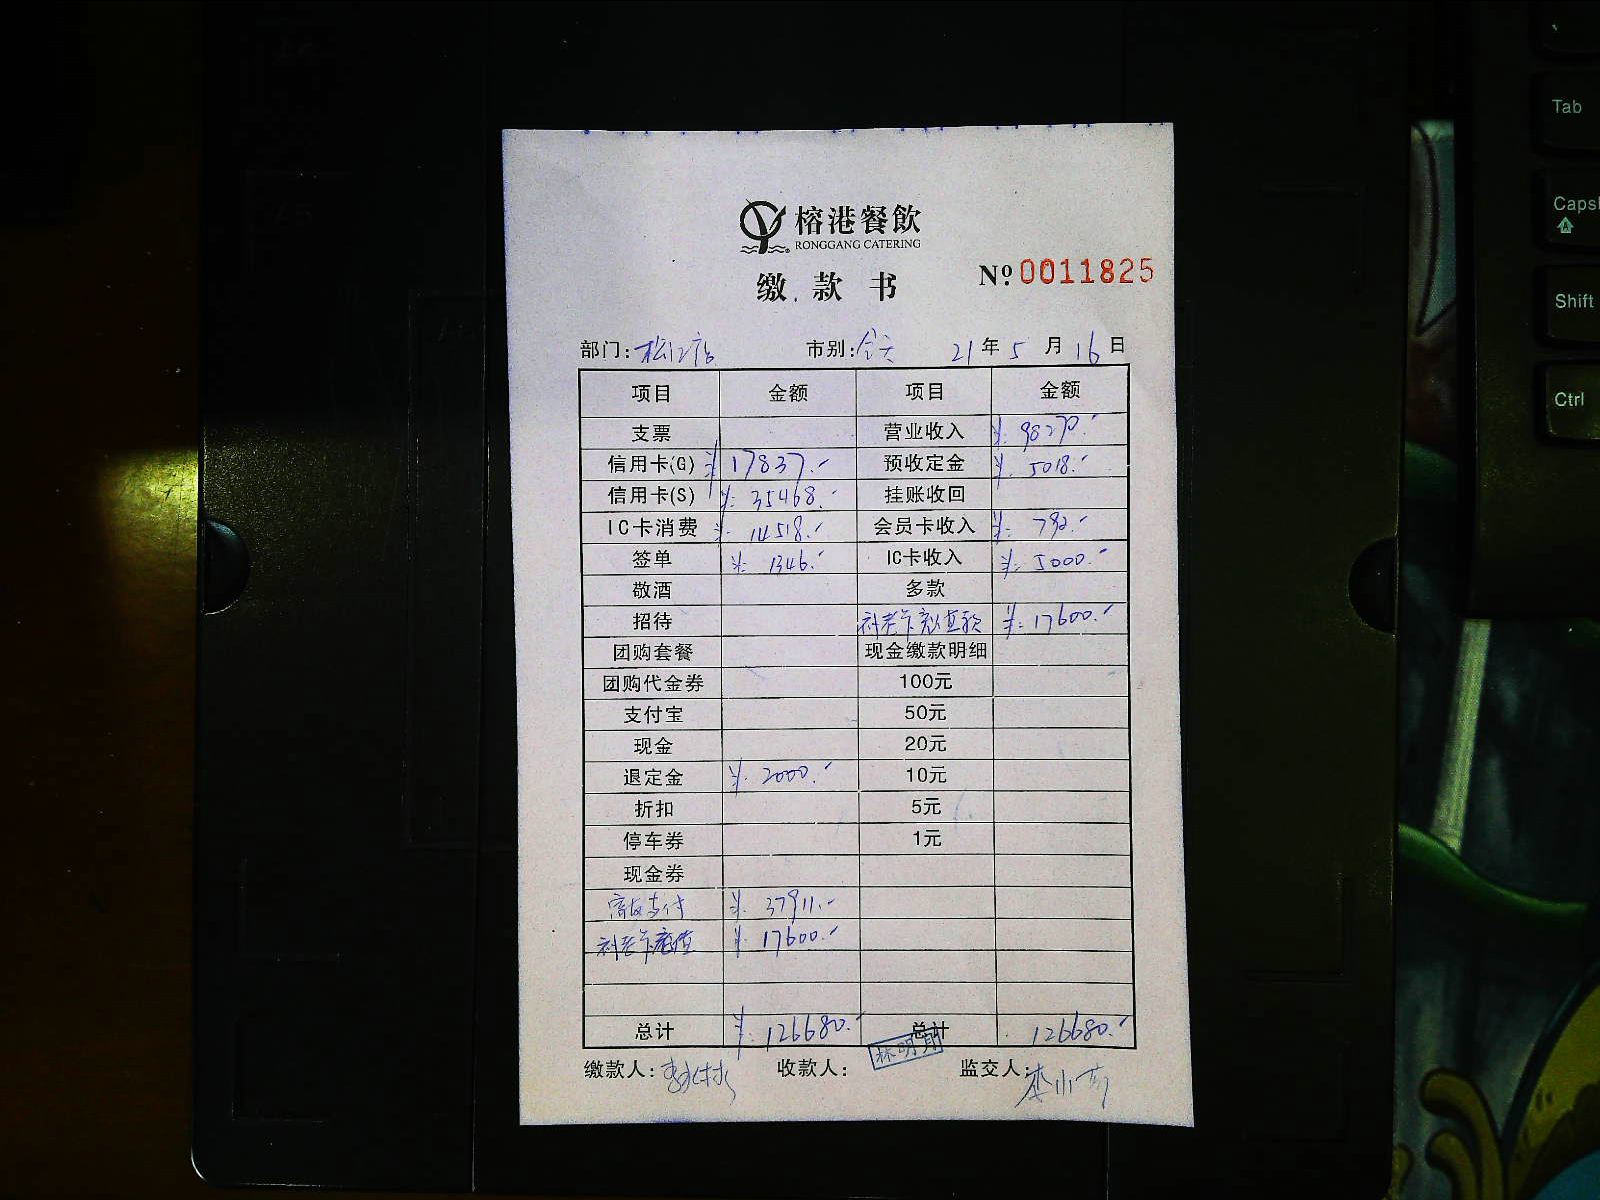 榕港餐飲
RONGGANG CATERING
缴款书
№ 0011825
部门: 松江店 市别: 全天 21年5月16日
项目 金额 项目 金额
支票 营业收入 ¥: 98270.-
信用卡(G) ¥ 17837.- 预收定金 ¥: 5018.-
信用卡(S) ¥: 35468.- 挂账收回
IC卡消费 ¥: 14518.- 会员卡收入 ¥: 792.-
签单 ¥: 1346.- IC卡收入 ¥: 5000.-
敬酒 多款
招待 补老卡充值款 ¥: 17600.-
团购套餐 现金缴款明细
团购代金券 100元
支付宝 50元
现金 20元
退定金 ¥: 2000.- 10元
折扣 5元
停车券 1元
现金券
支付 ¥: 37911.-
补老卡充值 ¥: 17600.-
总计 ¥: 126680.- 总计 126680.-
缴款人: 收款人: 监交人:
Tab
Caps
Shift
Ctrl